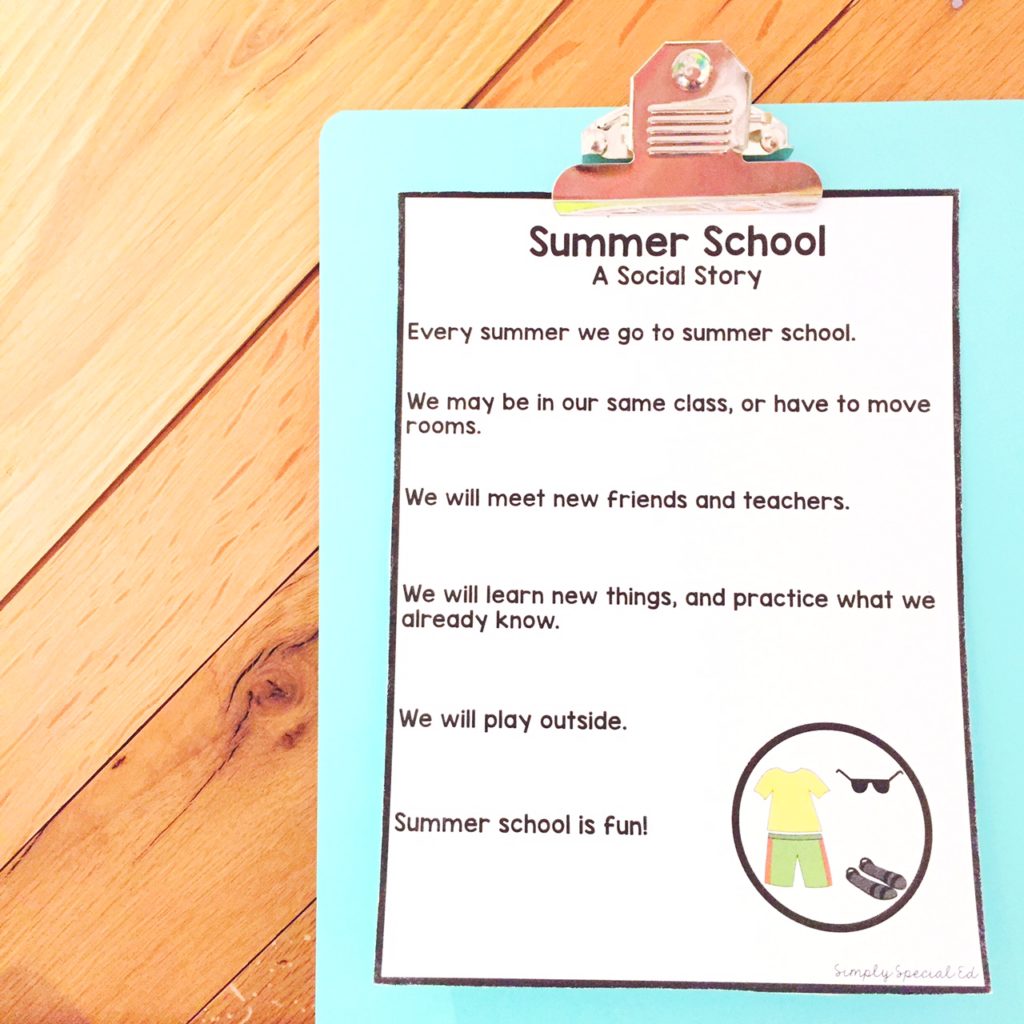 Summer School
A Social Story
Every summer we go to summer school.
We may be in our same class, or have to move
rooms.
We will meet new friends and teachers.
We will learn new things, and practice what we
already know.
We will play outside.
Summer school is fun!
Simply Special Ed